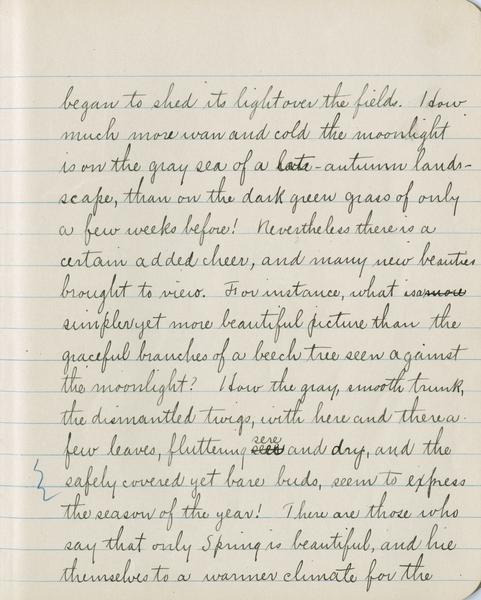 began to shed its light over the fields. How
much more wan and cold the moonlight
is on the gray sea of a late-autumn lands-
scape, than on the dark green grass of only
a few weeks before! Nevertheless there is a
certain added cheer, and many new beauties
brought to view. For instance, what is a more
simpler yet more beautiful picture than the
graceful branches of a beech tree seen against
the moonlight? How the gray, smooth trunk,
the dismantled twigs, with here and there a
few leaves, fluttering sere and dry, and the
safely covered yet bare buds, seem to express
the season of the year! There are those who
say that only Spring is beautiful, and hie
themselves to a warmer climate for the